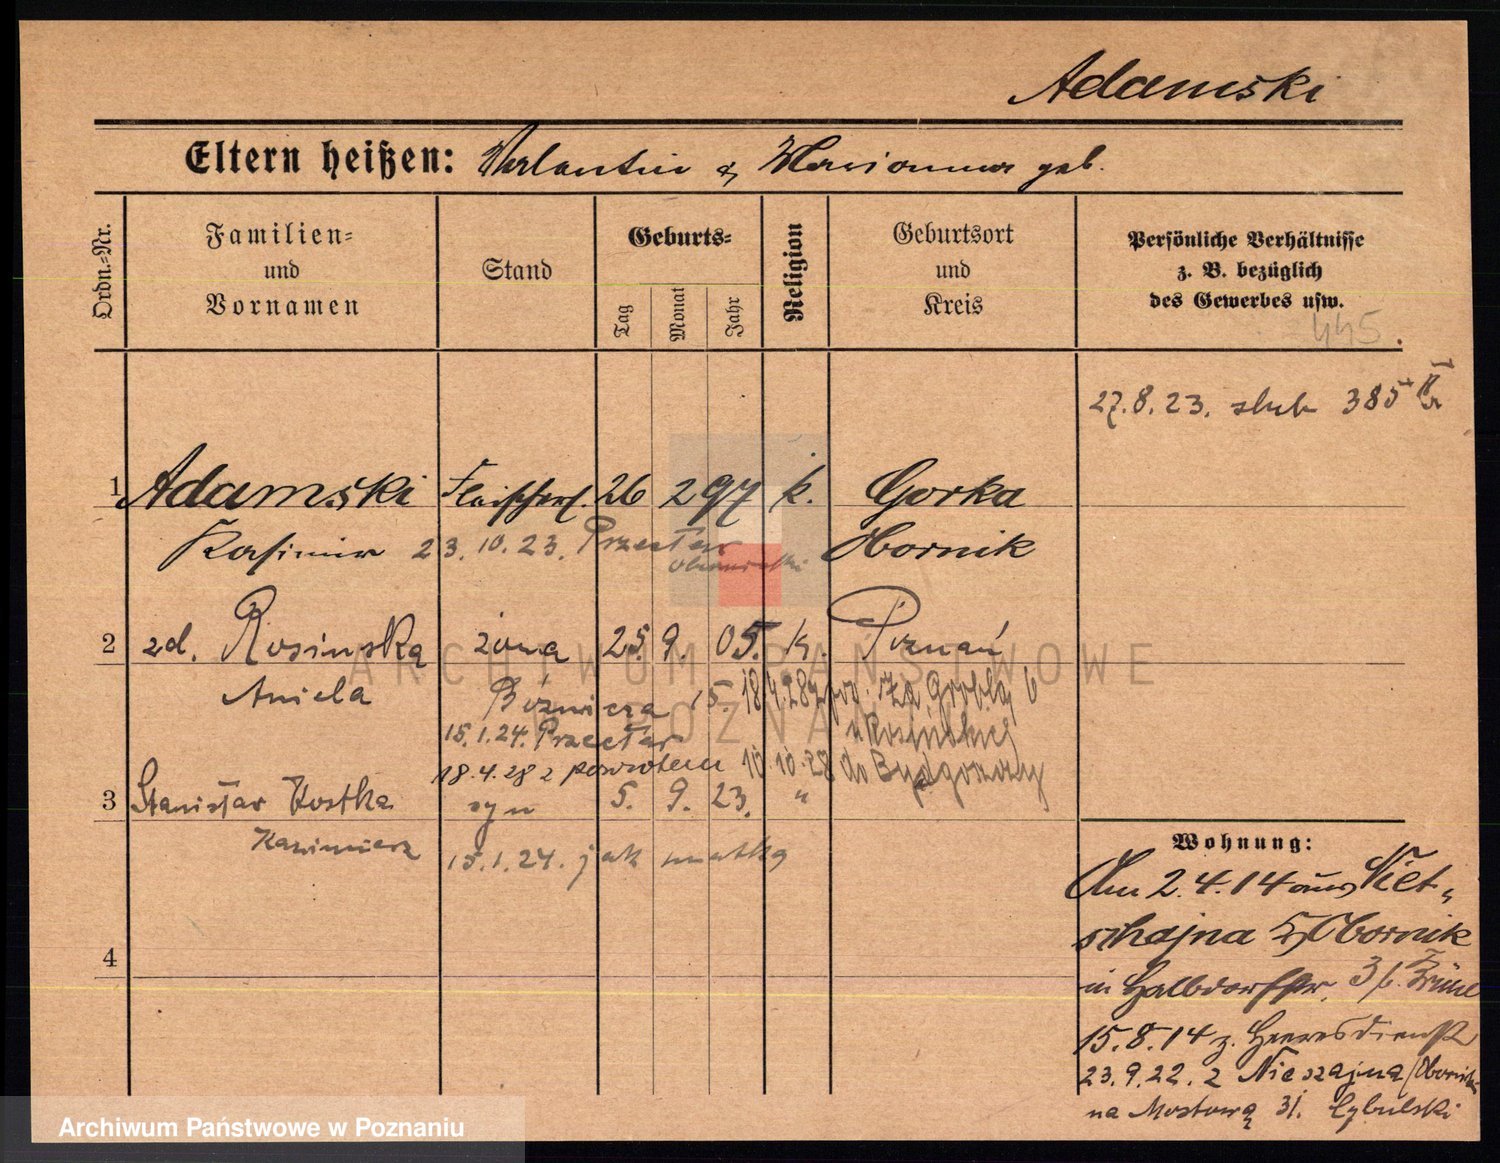 Adamski
Eltern heißen: Valentin & Marianna geb.
Ordn.-Nr.
Familien- und Vornamen
Stand
Geburts-
Tag
Monat
Jahr
Religion
Geburtsort und Kreis
Persönliche Verhältnisse
z. B. bezüglich
des Gewerbes usw.
445
27.8.23. slub 385
1 Adamski Fleischerl. 26 2 97 k. Gorka
Kasimir 23.10.23. Przecław Obornik
2 zd. Rosinską żona 25. 9. 05. k. Poznań
Aniela Bóżnicza 15. 18.4.28 Groblą 6
15.1.24. Przecław
18.4.28 z powrotem 10.10.28 do Bydgoszczy
3 Stanisław Kostka syn 5. 9. 23. "
Kazimierz 15.1.24. jak matka
4
Wohnung:
Am 2.4.14 aus Niet-
schajna Obornik
in Halbdorfstr. 31
15.8.14 z. Heeresdienst
23.9.22. z Nieszajna/Obornik
na Mostową 31. Cybulski
ARCHIWUM PAŃSTWOWE
W POZNANIU
Archiwum Państwowe w Poznaniu